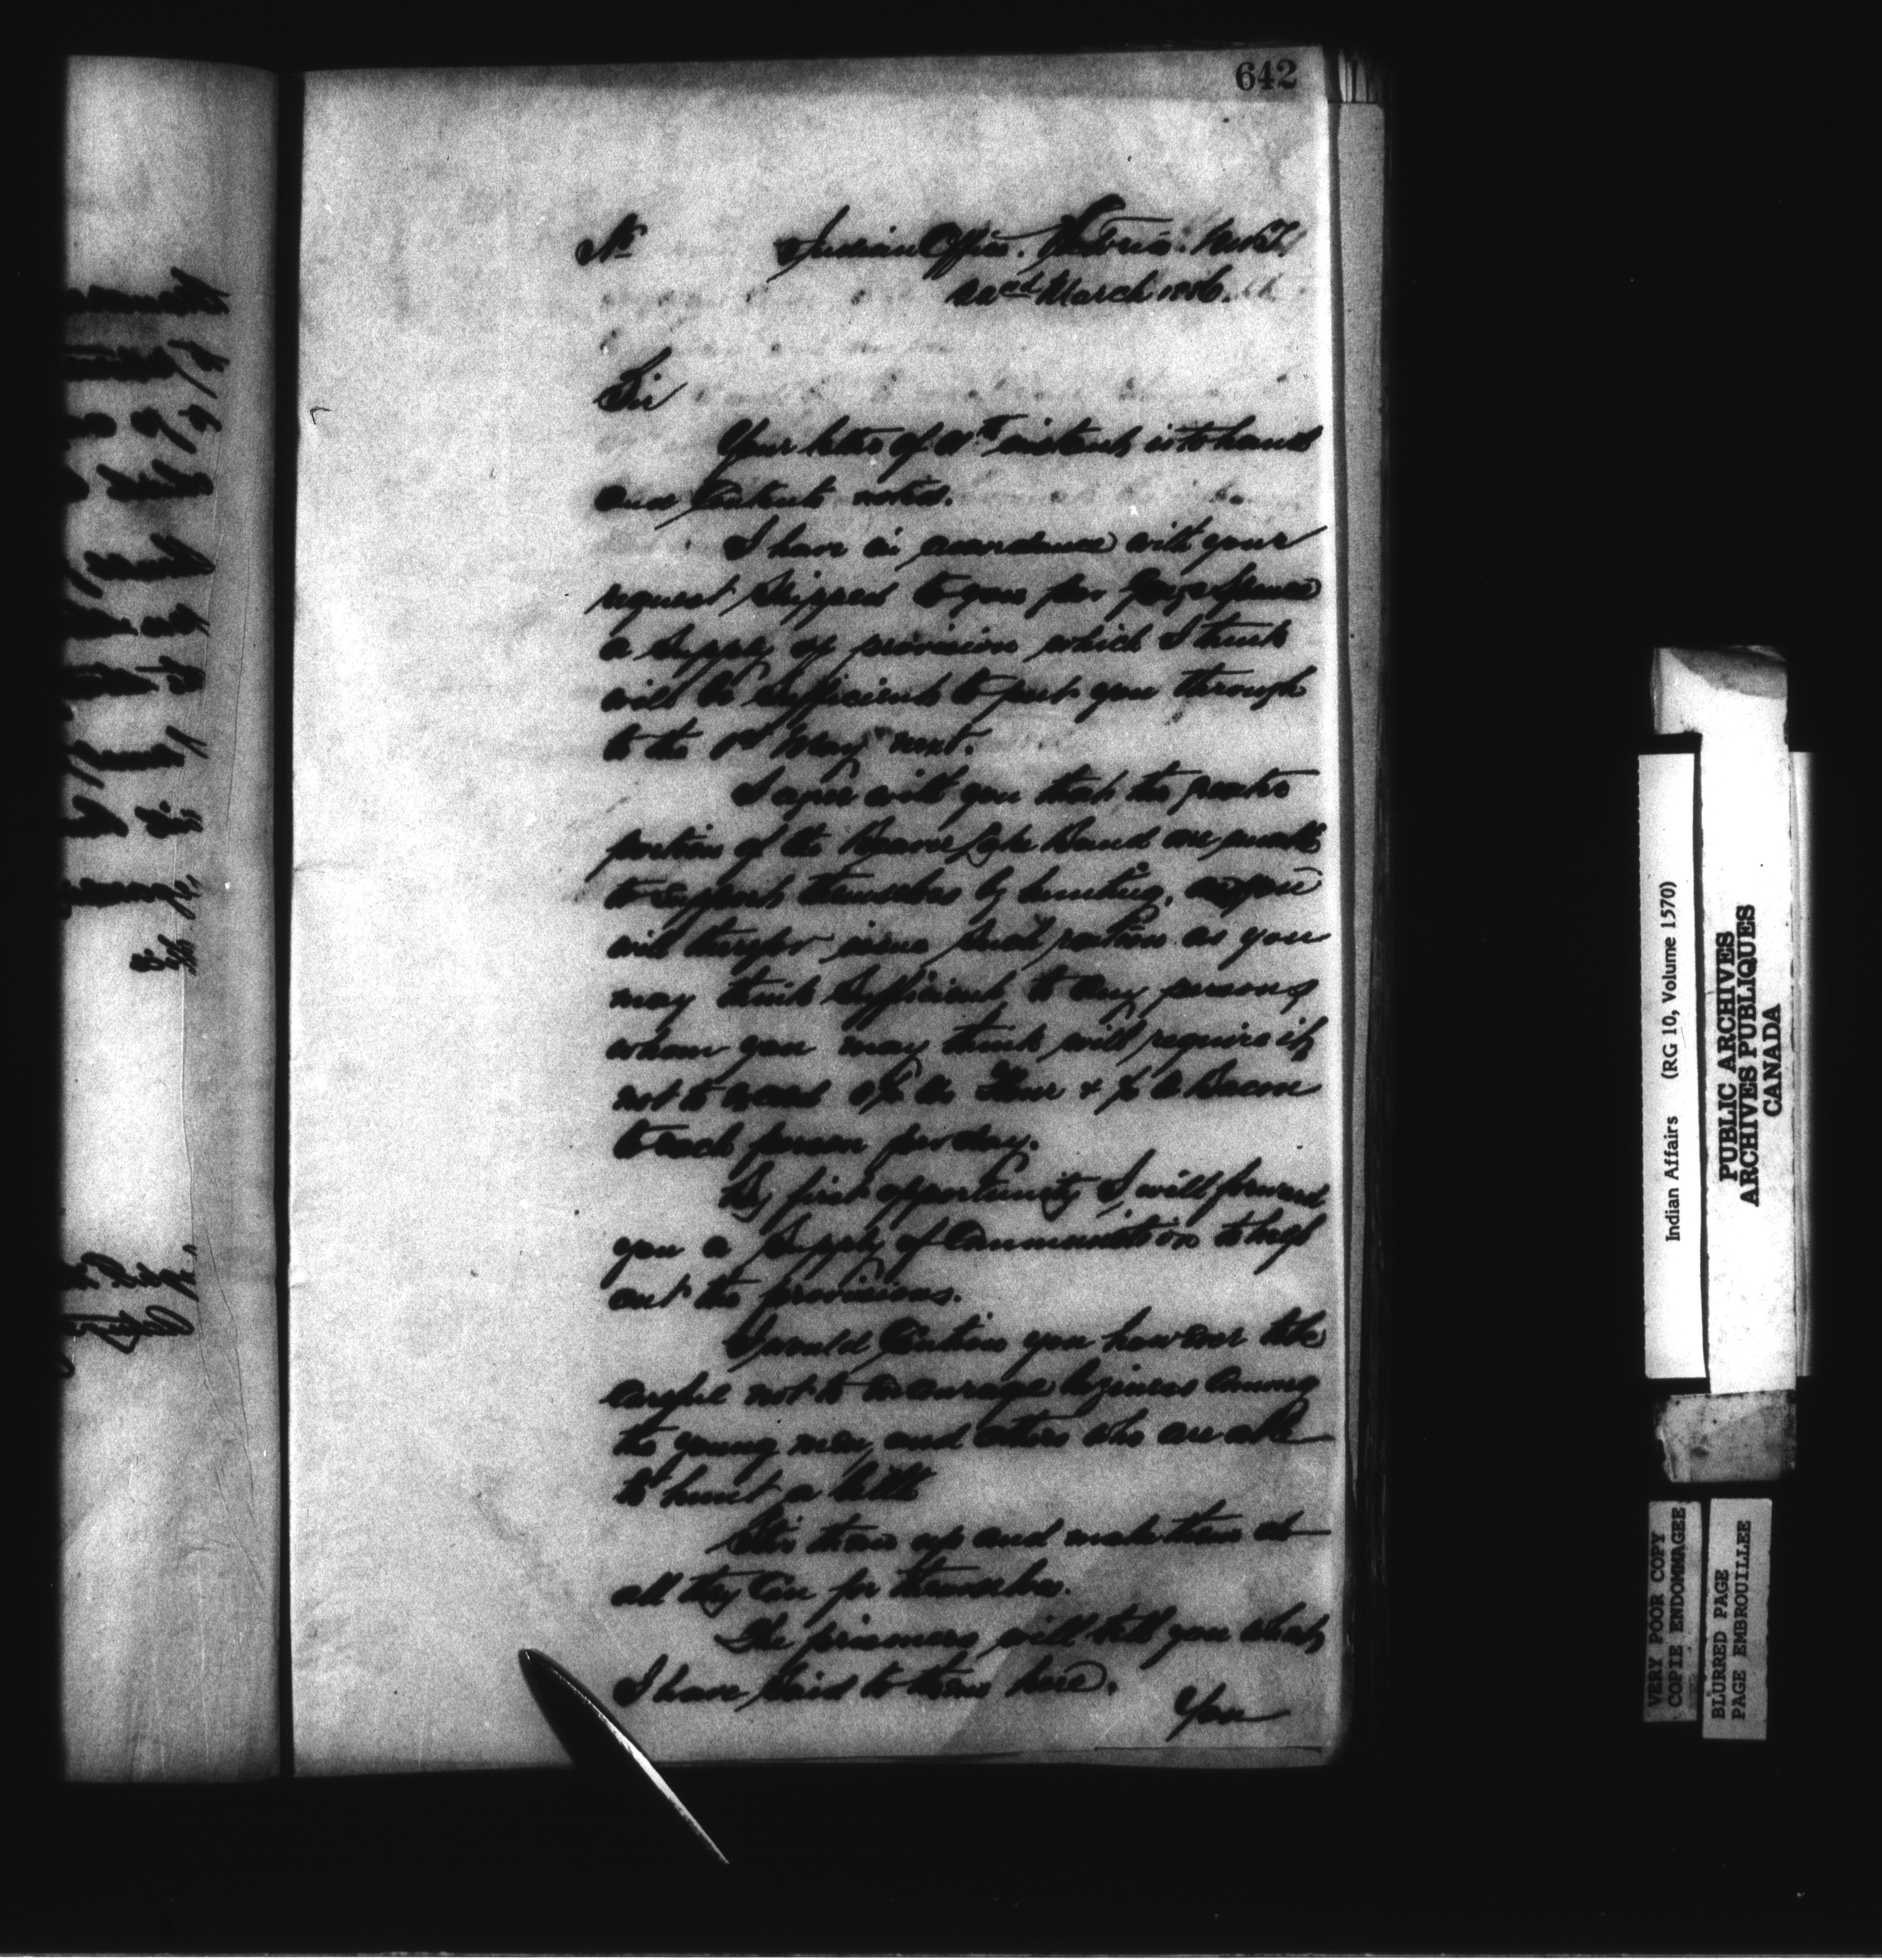 642
No Indian Office. Victoria. N.W.T.
22nd March 1886.
Sir
Your letter of instant is to hand
and Contents noted.
I have in accordance with your
request Shipped to you per Spence
a Supply of provision which I think
will be Sufficient to put you through
to the 1st May next.
I agree with you that the greater
portion of the Beaver Lake Band are unable
to support themselves by hunting, you
will therefor issue Such rations as you
may think Sufficient to any persons
whom you may think will require it
not to exceed lbs Flour & lb Bacon
to each person per day.
By first opportunity I will forward
you a Supply of Ammunition to help
out the provisions.
I would Caution you however to be
careful not to encourage laziness among
the young men, and others who are able
to hunt a little
Stir them up and make them do
all they Can for themselves.
The prisoners will tell you what
I have Said to them here.
You
Indian Affairs (RG 10, Volume 1570)
PUBLIC ARCHIVES
ARCHIVES PUBLIQUES
CANADA
VERY POOR COPY
COPIE ENDOMMAGEE
BLURRED PAGE
PAGE EMBROUILLEE